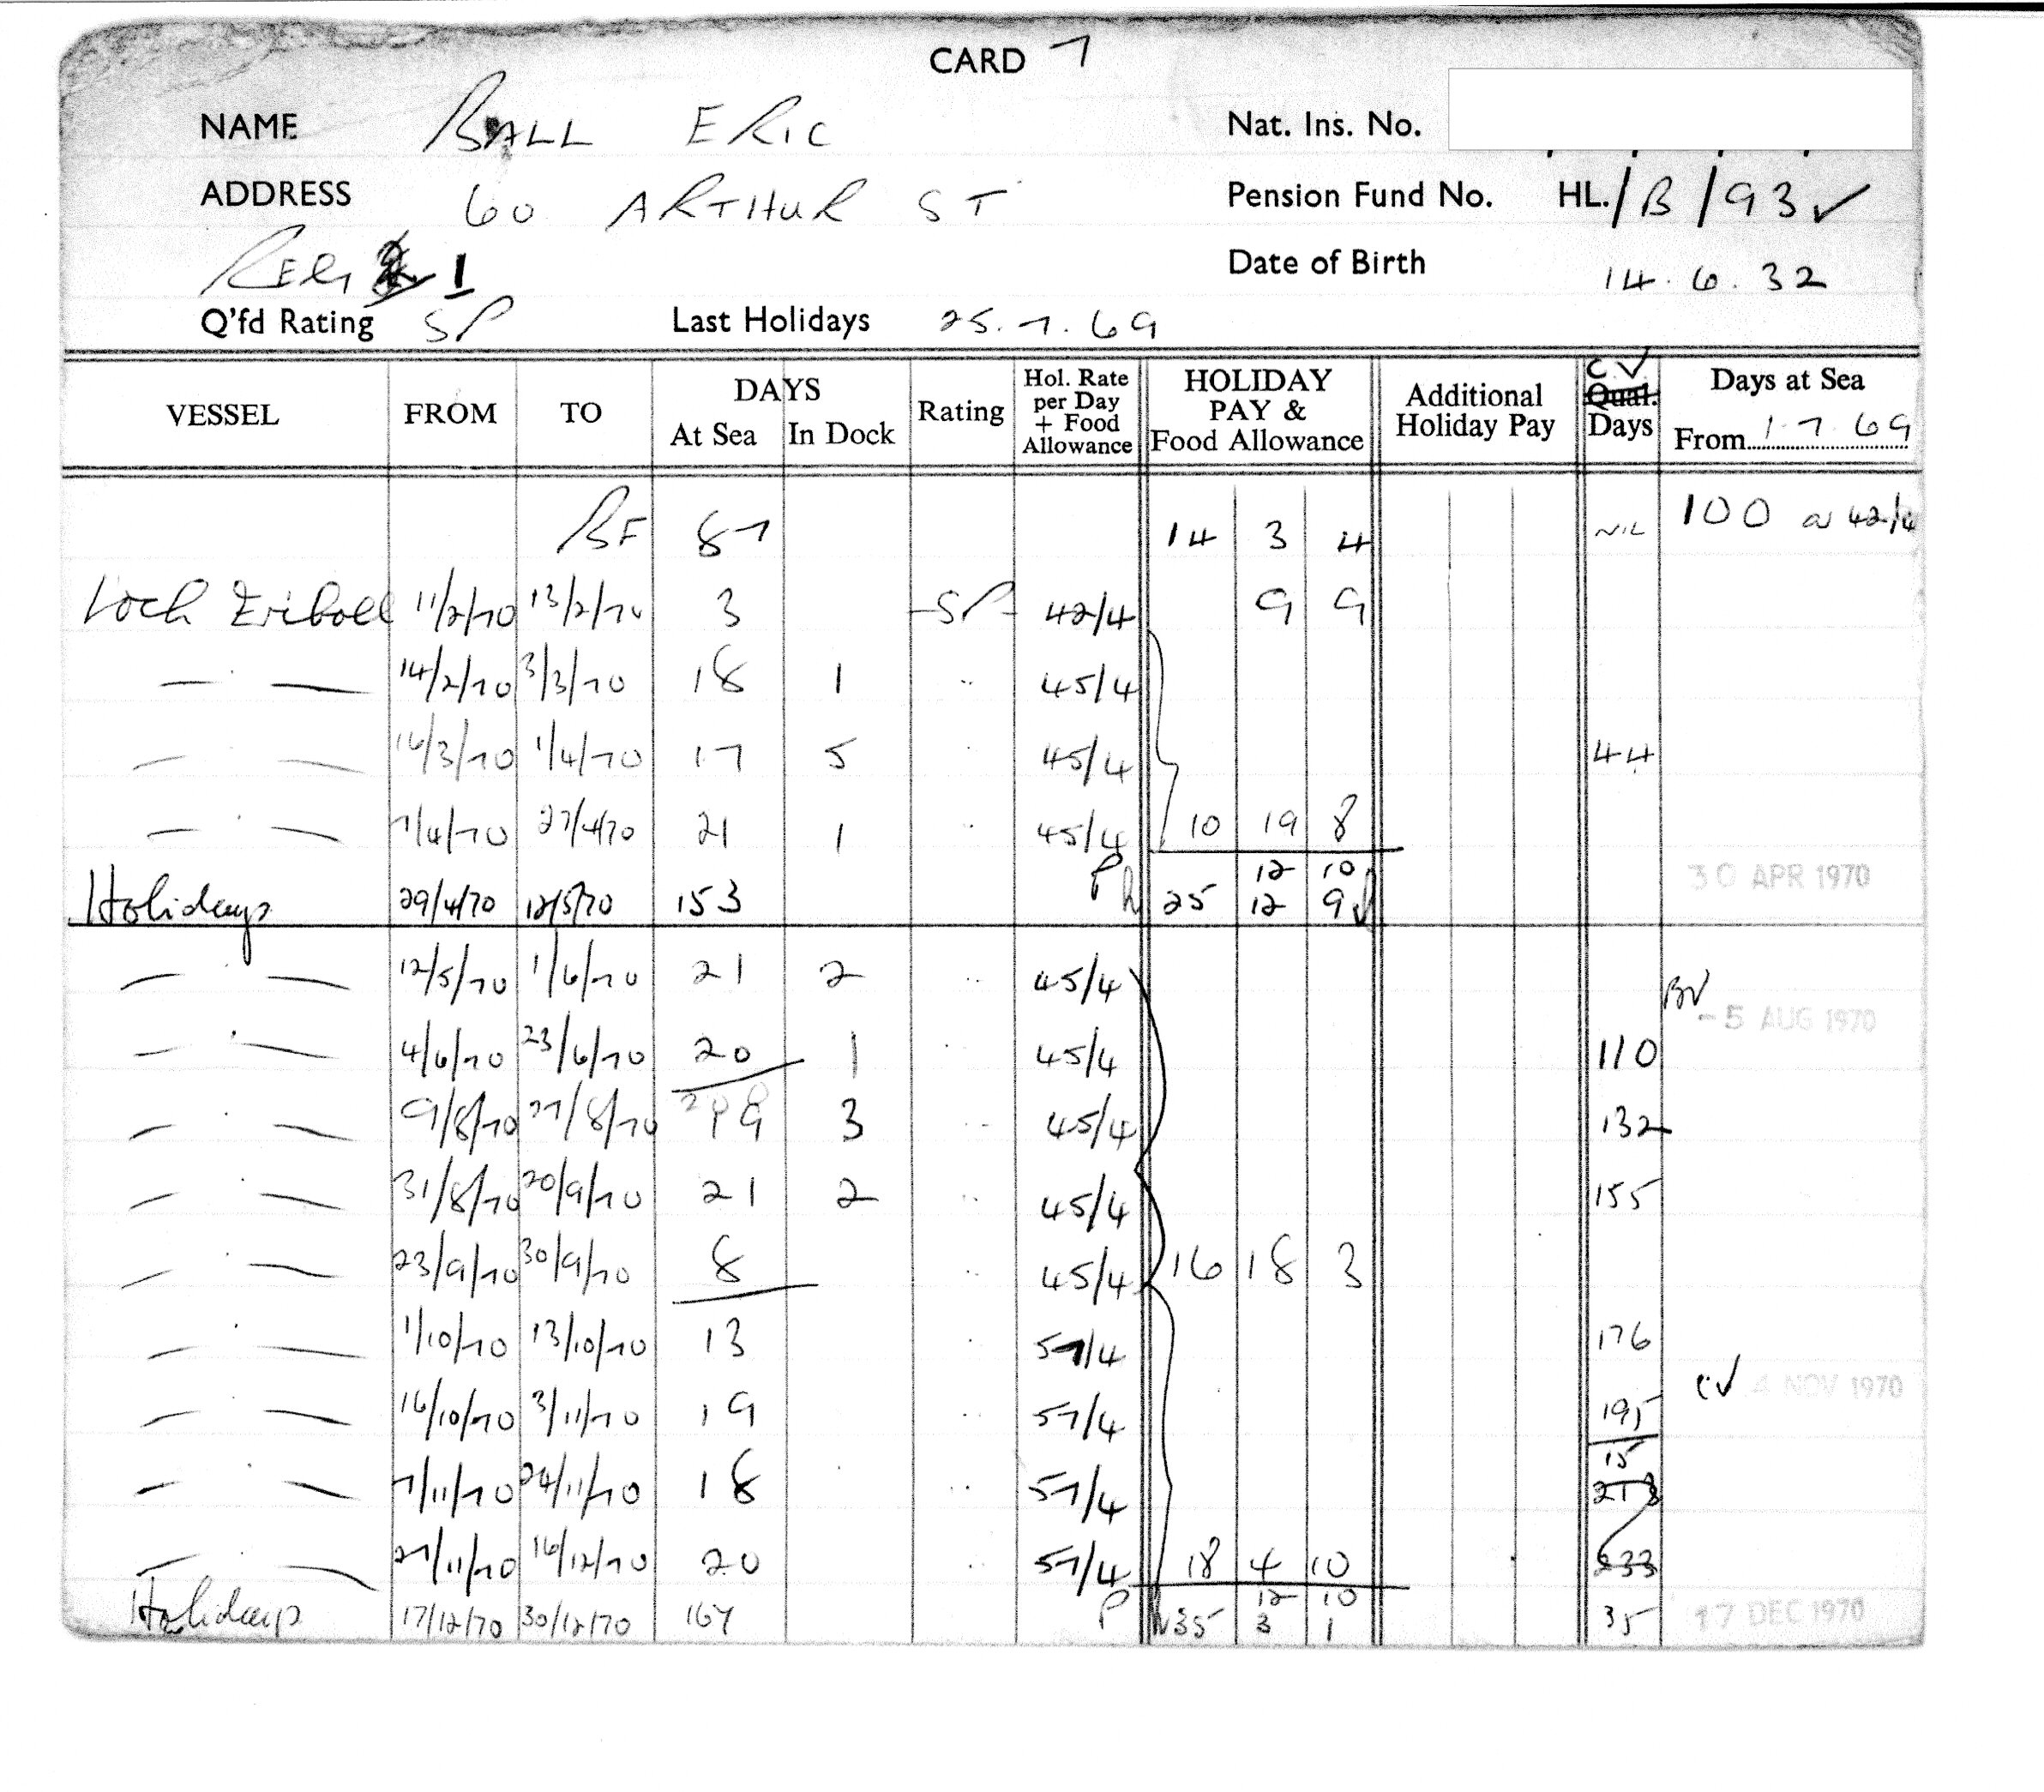 CARD 7
NAME BALL ERIC Nat. Ins. No.
ADDRESS 60 ARTHUR ST Pension Fund No. HL./B/93 ✓
REG 1 Date of Birth 14.6.32
Q'fd Rating SP Last Holidays 25.7.69
VESSEL FROM TO DAYS At Sea In Dock Rating Hol. Rate per Day + Food Allowance HOLIDAY PAY & Food Allowance Additional Holiday Pay C ✓ Qual. Days Days at Sea From 1.7.69
BF 87 14 3 4 NIL 100 @ 42/4
Loch Eriboll 11/2/70 13/2/70 3 SP 42/4 9 9
— " — 14/2/70 3/3/70 18 1 " 45/4
— " — 16/3/70 1/4/70 17 5 " 45/4 44
— " — 7/4/70 27/4/70 21 1 " 45/4 10 19 8
12 10
Holidays 29/4/70 12/5/70 153 Ph 25 12 9 ✓ 30 APR 1970
— " — 12/5/70 1/6/70 21 2 " 45/4 BV -5 AUG 1970
— " — 4/6/70 23/6/70 20 1 " 45/4 110
— " — 9/8/70 27/8/70 19 3 " 45/4 132
— " — 31/8/70 20/9/70 21 2 " 45/4 155
— " — 23/9/70 30/9/70 8 " 45/4 16 18 3
— " — 1/10/70 13/10/70 13 " 57/4 176
— " — 16/10/70 3/11/70 19 " 57/4 195 c✓ 4 NOV 1970
15
— " — 7/11/70 24/11/70 18 " 57/4 213
— " — 27/11/70 16/12/70 20 " 57/4 18 4 10 233
12 10
Holidays 17/12/70 30/12/70 167 P 35 3 1 35 17 DEC 1970